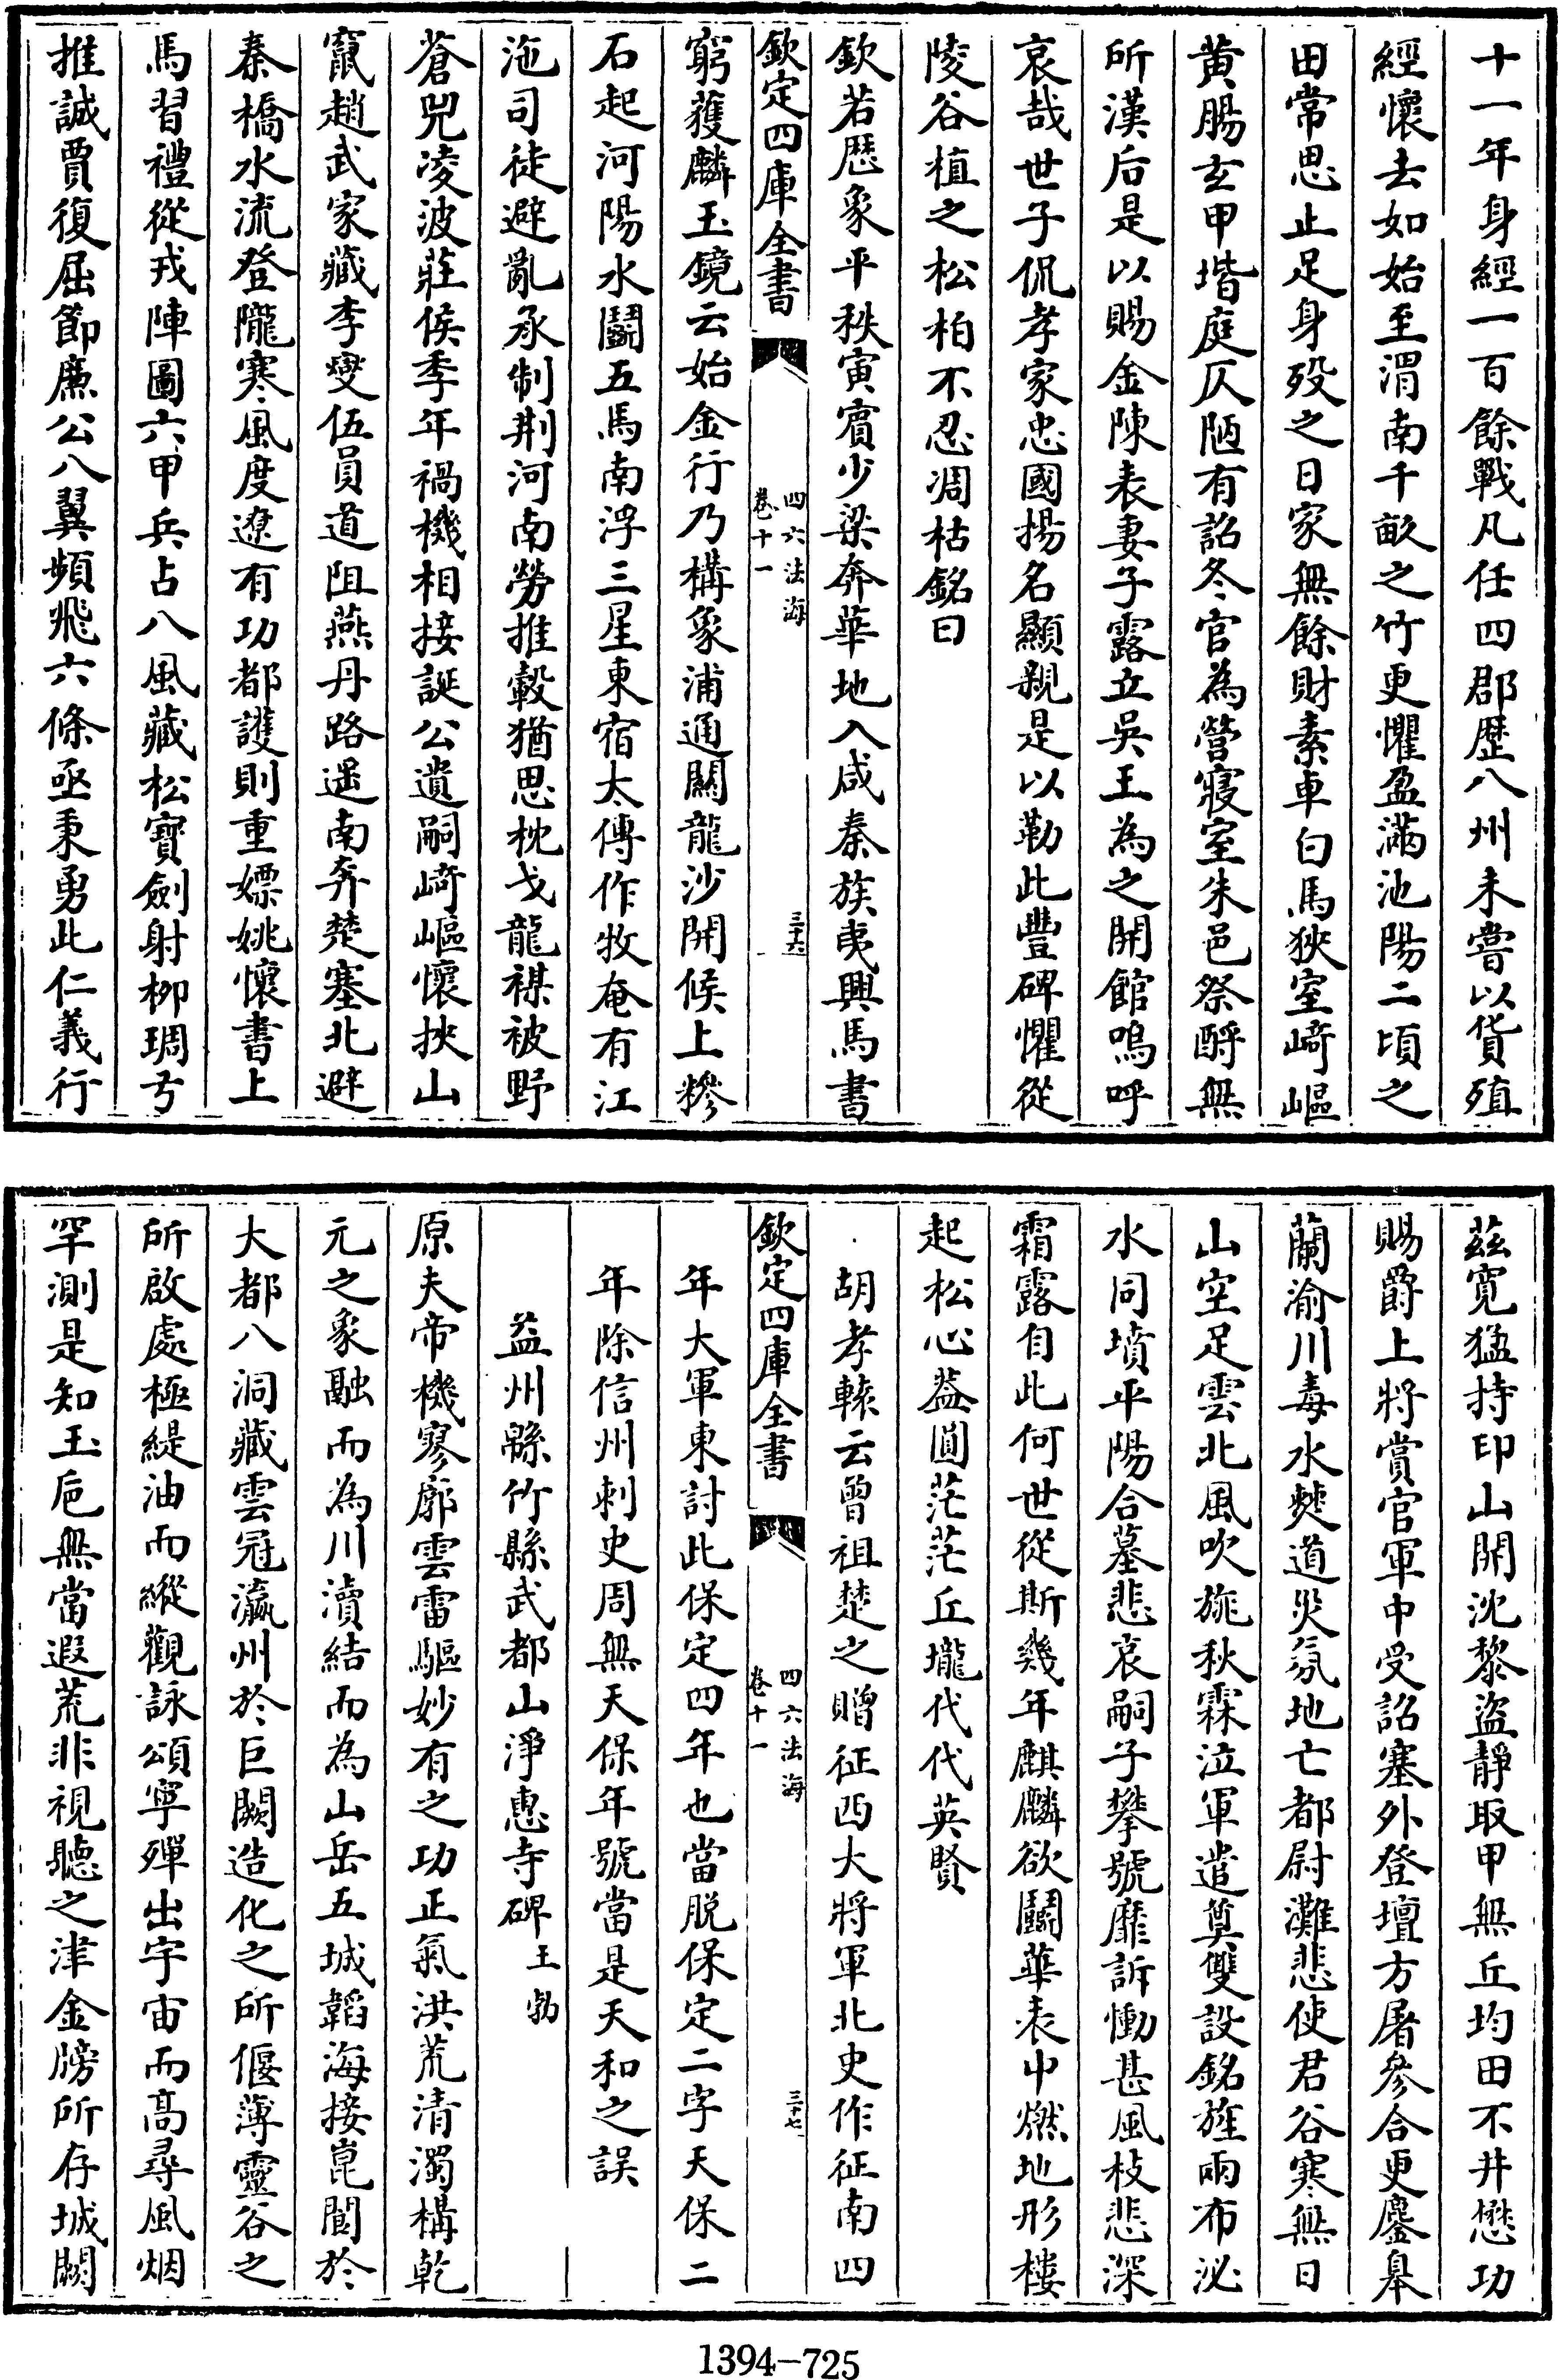 十一年身經一百餘戰凡任四郡歷八州未嘗以貨殖
經懷去如始至渭南千畝之竹更懼盈滿池陽二頃之
田常思止足身殁之日家無餘財素車白馬狹室﨑嶇
黃腸玄甲堦庭仄陋有詔冬官為營寢室朱邑祭酹無
所漢后是以賜金陳表妻子露立吳王為之開館嗚呼
哀哉世子侃孝家忠國揚名顯親是以勒此豐碑懼從
陵谷植之松柏不忍凋枯銘曰
欽若歷象平秩寅賓少梁奔華地入咸秦族夷興馬書
欽定四庫全書
四六法海
卷十一
三十六
窮獲麟玉鏡云始金行乃構象浦通關龍沙開候上㣎
石起河陽水鬭五馬南浮三星東宿太傅作牧奄有江
沲司徒避亂承制荆河南勞推轂猶思枕戈龍禖被野
蒼兕凌波莊侯季年禍機相接誕公遺嗣﨑嶇懷挾山
竄趙武家藏李燮伍員道阻燕丹路遥南奔楚塞北避
秦橋水流登隴寒風度遼有功都護則重嫖姚懷書上
馬習禮從戎陣圖六甲兵占八風藏松寶劍射栁琱弓
推誠賈復屈節廉公八翼頻飛六條亟秉勇此仁義行
茲寛猛持印山開沈黎盜靜取甲無丘均田不井懋功
賜爵上將賞官軍中受詔塞外登壇方屠參合更鏖臯
蘭渝川毒水僰道災氛地亡都尉灘悲使君谷寒無日
山空足雲北風吹旐秋霖泣軍遣奠雙設銘旌兩布泌
水同墳平陽合墓悲哀嗣子攀號靡訴慟甚風枝悲深
霜露自此何世從斯幾年麒麟欲鬭華表中燃地形樓
起松心葢圓茫茫丘壠代代英賢
胡孝轅云曾祖楚之贈征西大將軍北史作征南四
欽定四庫全書
四六法海
卷十一
三十七
年大軍東討此保定四年也當脱保定二字天保二
年除信州刺史周無天保年號當是天和之誤
益州緜竹縣武都山淨惠寺碑 王勃
原夫帝機寥廓雲雷驅妙有之功正氣洪荒清濁構乾
元之象融而為川瀆結而為山岳五城韜海接崑閬於
大都八洞藏雲冠瀛州於巨闕造化之所偃薄靈谷之
所啟處極緹油而縱觀詠頌寧殫出宇宙而高尋風烟
罕測是知玉巵無當遐荒非視聽之津金牓所存城闕
1394-725